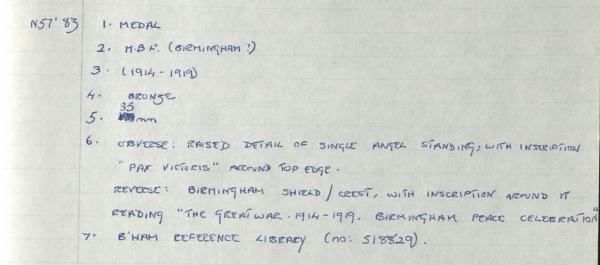 N57'83 1. MEDAL
2. M.B.L. (BIRMINGHAM?)
3. (1914-1919)
4. BRONZE
35
5. mm
6. OBVERSE: RAISED DETAIL OF SINGLE ANGEL STANDING; WITH INSCRIPTION
"PAX VICTORIS" AROUND TOP EDGE.
REVERSE: BIRMINGHAM SHIELD/CREST, WITH INSCRIPTION AROUND IT
READING "THE GREAT WAR. 1914-1919. BIRMINGHAM PEACE CELEBRATION"
7. B'HAM REFERENCE LIBRARY (no: 518829).